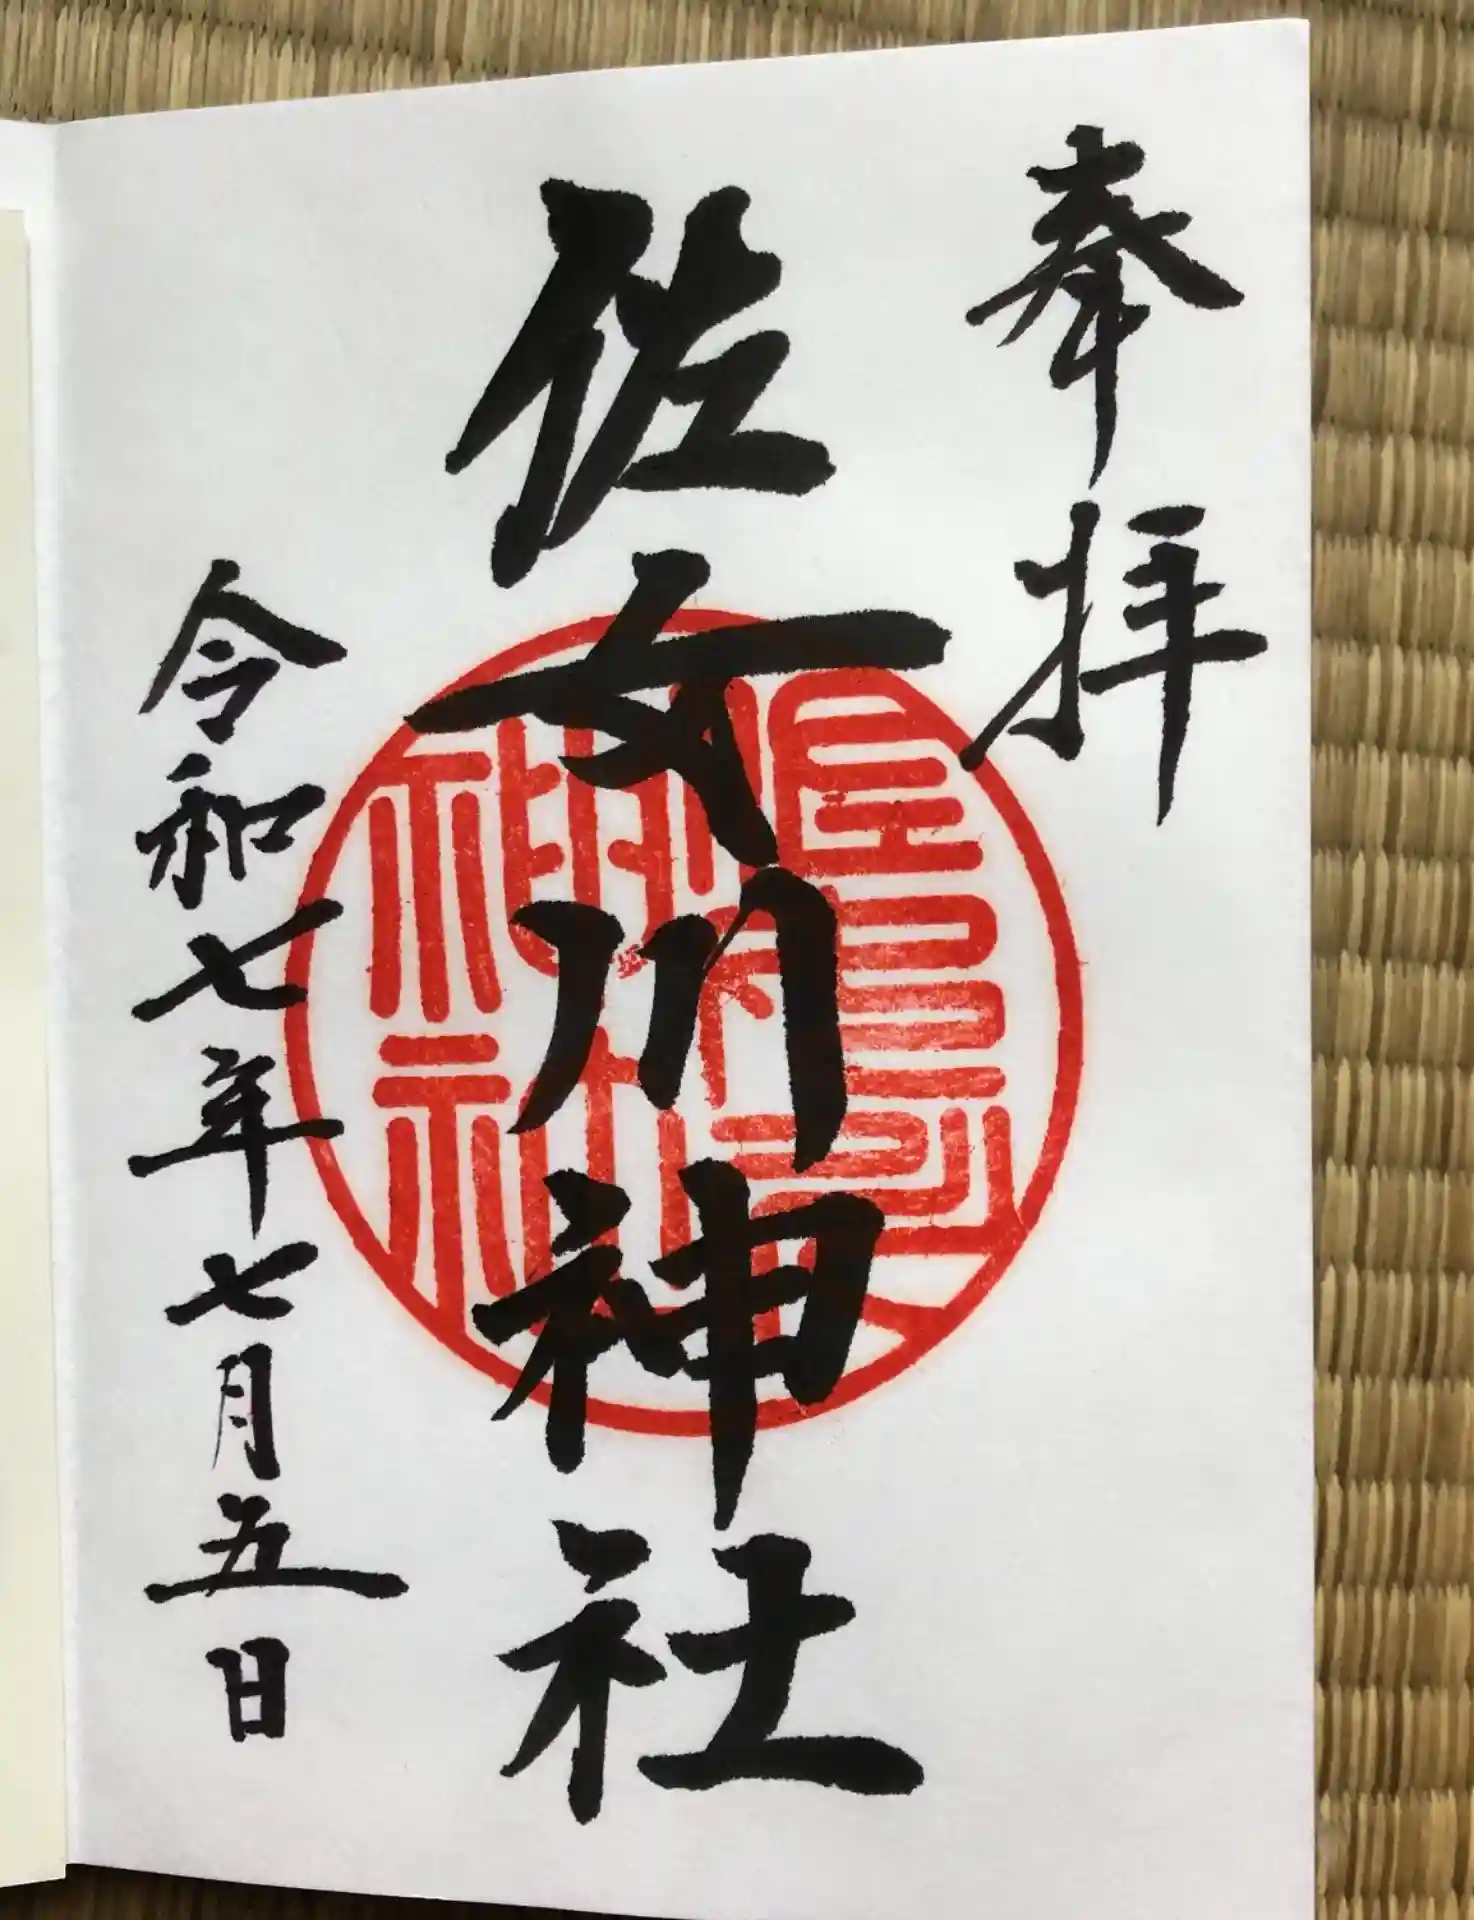 奉拝
佐女川神社
令和七年七月五日